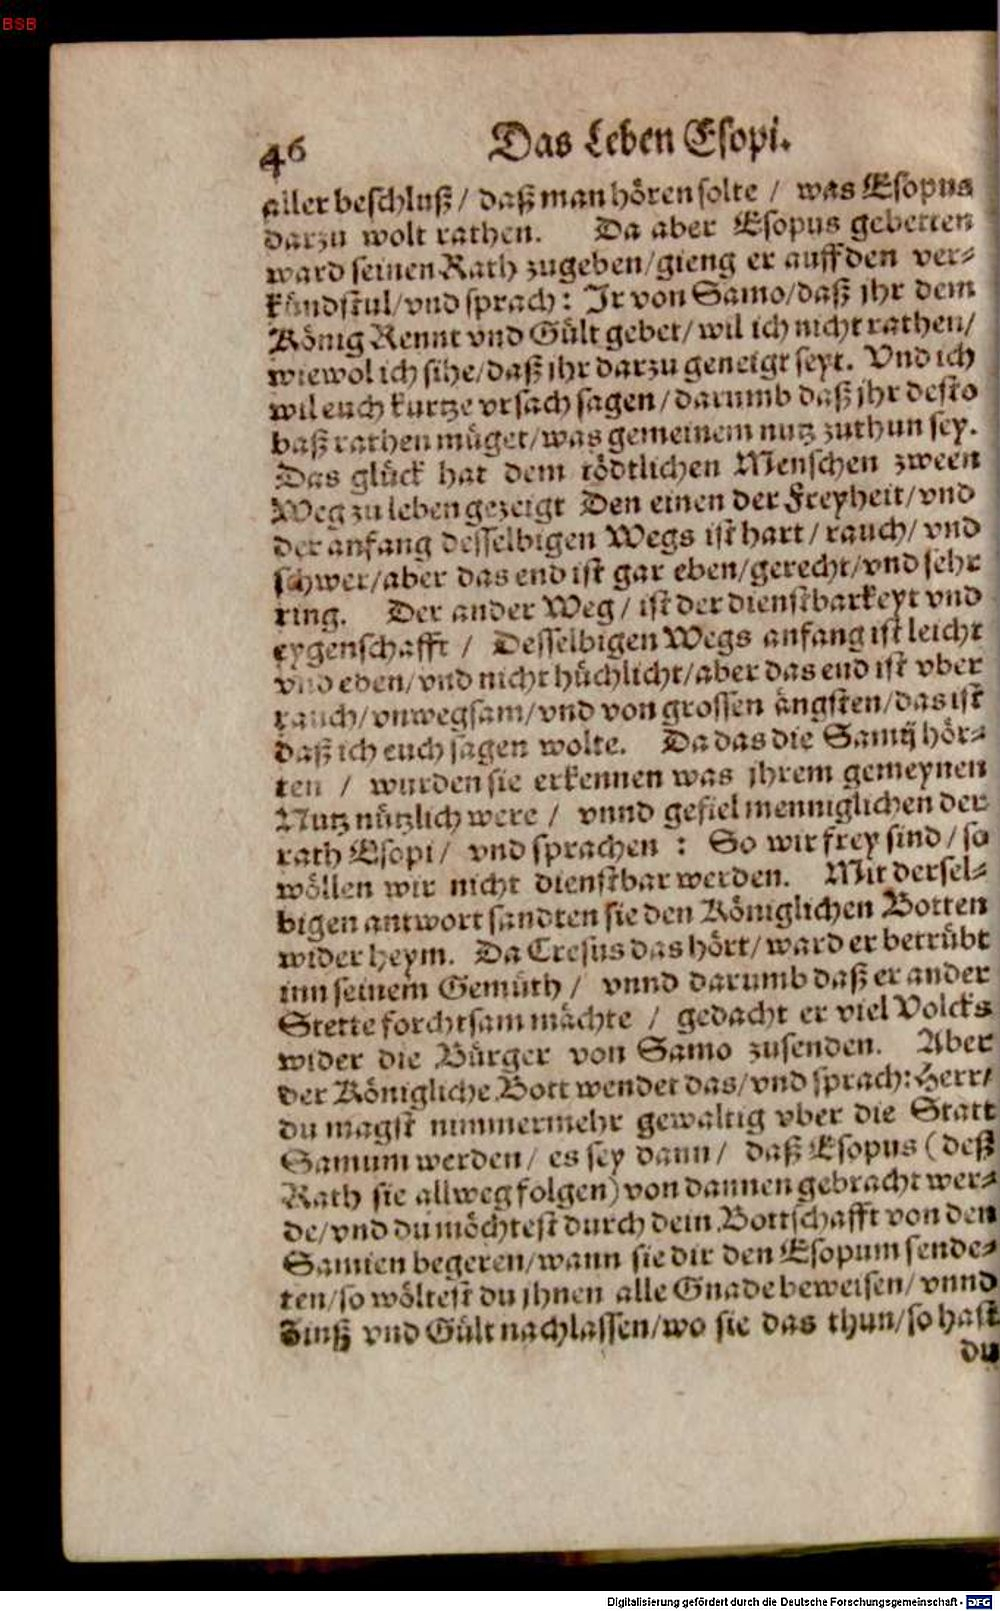 BSB
46 Das Leben Esopi.
aller beschluß / daß man hören solte / was Esopus
darzu wolt rathen. Da aber Esopus gebetten
ward seinen Rath zugeben/gieng er auff den ver-
kündstul/vnd sprach: Ir von Samo/daß jhr dem
König Rennt vnd Gült gebet/wil ich nicht rathen/
wiewol ich sihe/daß jhr darzu geneigt seyt. Vnd ich
wil euch kurtze vrsach sagen/darumb daß jhr desto
baß rathen müget/was gemeinem nutz zuthun sey.
Das glück hat dem tödtlichen Menschen zween
Weg zu leben gezeigt Den einen der Freyheit/vnd
der anfang desselbigen Wegs ist hart/rauch/vnd
schwer/aber das end ist gar eben/gerecht/vnd sehr
ring. Der ander Weg / ist der dienstbarkeyt vnd
eygenschafft / Desselbigen Wegs anfang ist leicht
vnd eben/vnd nicht hüchlicht/aber das end ist vber
rauch/vnwegsam/vnd von grossen ängsten/das ist
daß ich euch sagen wolte. Da das die Samij hör-
ten / wurden sie erkennen was jhrem gemeynen
Nutz nützlich were / vnnd gefiel menniglichen der
rath Esopi/ vnd sprachen : So wir frey sind / so
wöllen wir nicht dienstbar werden. Mit dersel-
bigen antwort sandten sie den Königlichen Botten
wider heym. Da Cresus das hört/ward er betrübt
inn seinem Gemüth / vnnd darumb daß er ander
Stette forchtsam mächte / gedacht er viel Volcks
wider die Bürger von Samo zusenden. Aber
der Königliche Bott wendet das/vnd sprach: Herr/
du magst nimmermehr gewaltig vber die Statt
Samum werden/ es sey dann/ daß Esopus (deß
Rath sie allweg folgen) von dannen gebracht wer-
de/vnd du möchtest durch dein Bottschafft von den
Samien begeren/wann sie dir den Esopum sende-
ten/so wöltest du jhnen alle Gnade beweisen/vnnd
Zinß vnd Gült nachlassen/wo sie das thun/so hast
du
Digitalisierung gefördert durch die Deutsche Forschungsgemeinschaft - DFG